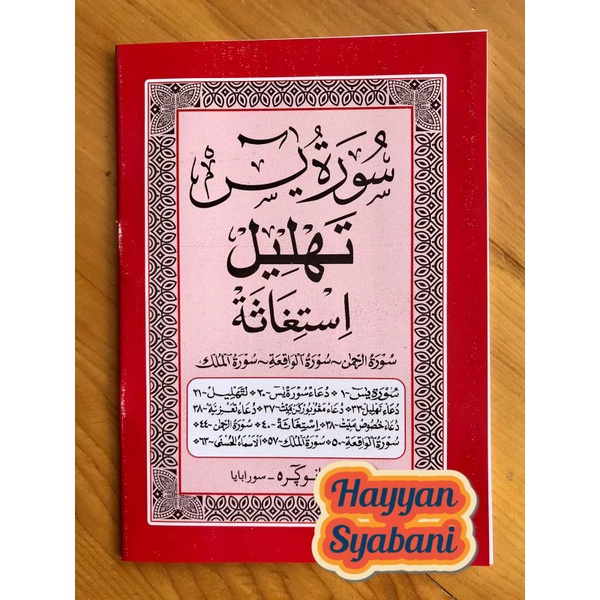 سُورَةُ يٰسٓ
تَهْلِيْل
اِسْتِغَاثَة
سُوْرَةُ الرَّحْمٰن ~ سُوْرَةُ الْوَاقِعَة ~ سُوْرَةُ الْمُلْك
سُوْرَة يٰسٓ ~ ١ • دُعَاء سُوْرَة يٰسٓ ~ ٢٠ • تَهْلِيْل ~ ٢١
دُعَاء تَهْلِيْل ~ ٣٣ • دُعَاء مقبوركن ميّت ~ ٣٧ • دُعَاء تَعْزِيَة ~ ٣٨
دُعَاء خُصُوْص مَيِّت ~ ٣٨ • اِسْتِغَاثَة ~ ٤٠ • سُوْرَة الرَّحْمٰن ~ ٤٤
سُوْرَة الْوَاقِعَة ~ ٥٠ • سُوْرَة الْمُلْك ~ ٥٧ • اَلْاَسْمَاءُ الْحُسْنٰى ~ ٦٣
سورابايا
Hayyan
Syabani